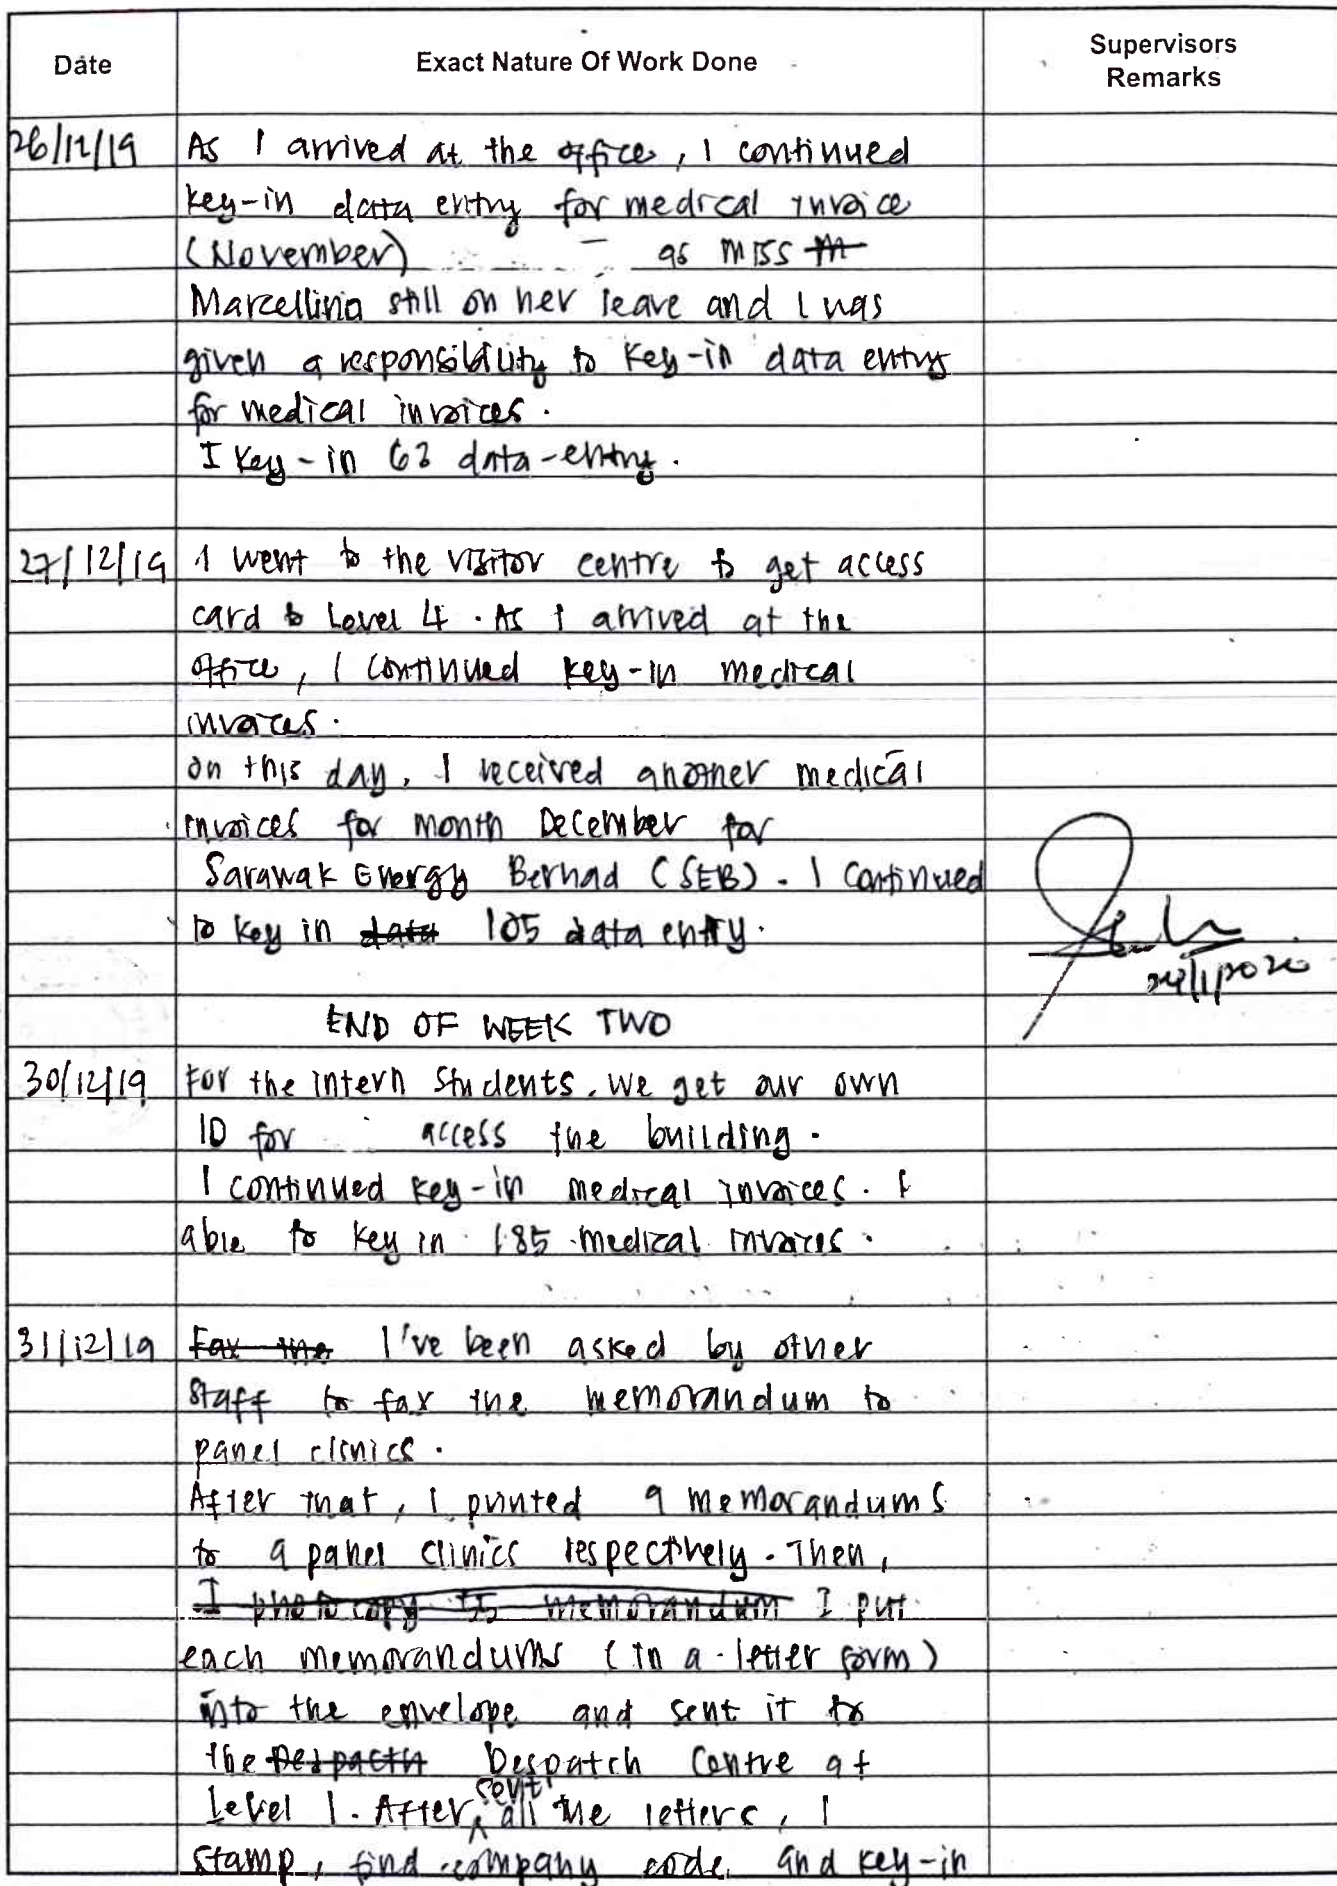 Date
Exact Nature Of Work Done
Supervisors
Remarks
26/12/19
As I arrived at the office, I continued
key-in data entry for medical invoice
(November) as miss
Marcellina still on her leave and I was
given a responsibility to key-in data entry
for medical invoices.
I key-in 63 data-entry.
27/12/19
I went to the visitor centre to get access
card to Level 4. As I arrived at the
office, I continued key-in medical
invoices.
on this day, I received another medical
invoices for month December for
Sarawak Energy Berhad (SEB). I continued
to key in data 105 data entry.
24/1/2020
END OF WEEK TWO
30/12/19
For the intern students. We get our own
ID for access the building.
I continued key-in medical invoices. I
able to key in 185 medical invoices.
31/12/19
Fax the I've been asked by other
staff to fax the memorandum to
panel clinics.
After that, I printed 9 memorandums
to 9 panel clinics respectively. Then,
I photocopy memorandum I put
each memorandums (in a letter form)
into the envelope and sent it to
the Despacth Despatch Centre at
Level 1. After sent all the letters, I
stamp, find company code and key-in